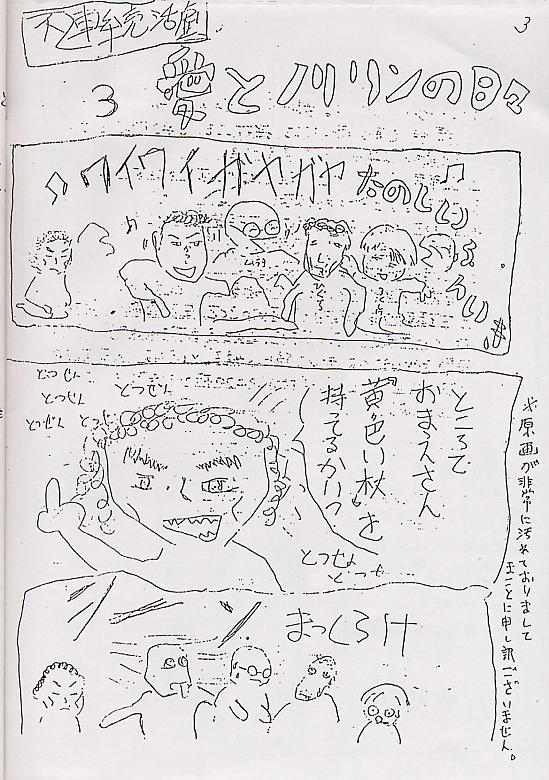 不連続活劇
3
3 愛とノリリンの日々
♪ワイワイガヤガヤ たのしいふんい♪
ムラタ
ところで
おまえさん
"黄色い秋"を
持てるかい?
とつぜん
とつぜん
とつぜん
とつぜん
まっくろけ
※原画が非常に汚れておりまして
まことに申し訳ございません。